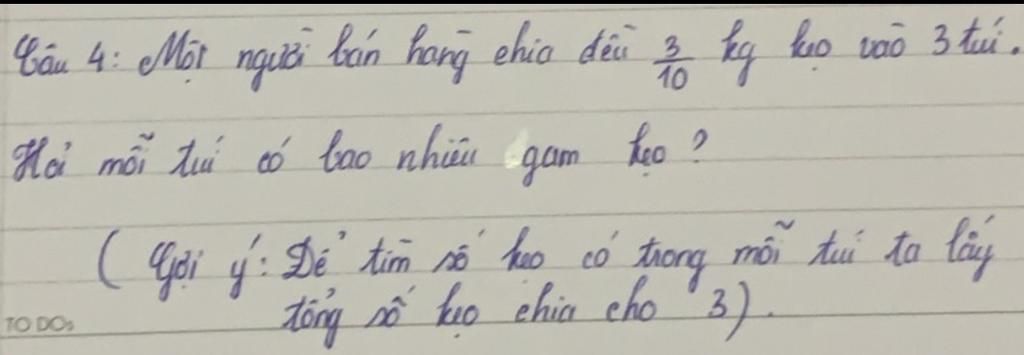 Câu 4: Một người bán hàng chia đều 3/10 kg kẹo vào 3 túi.
Hỏi mỗi túi có bao nhiêu gam kẹo?
(Gợi ý: Để tìm số kẹo có trong mỗi túi ta lấy
tổng số kẹo chia cho 3).
TO DOs